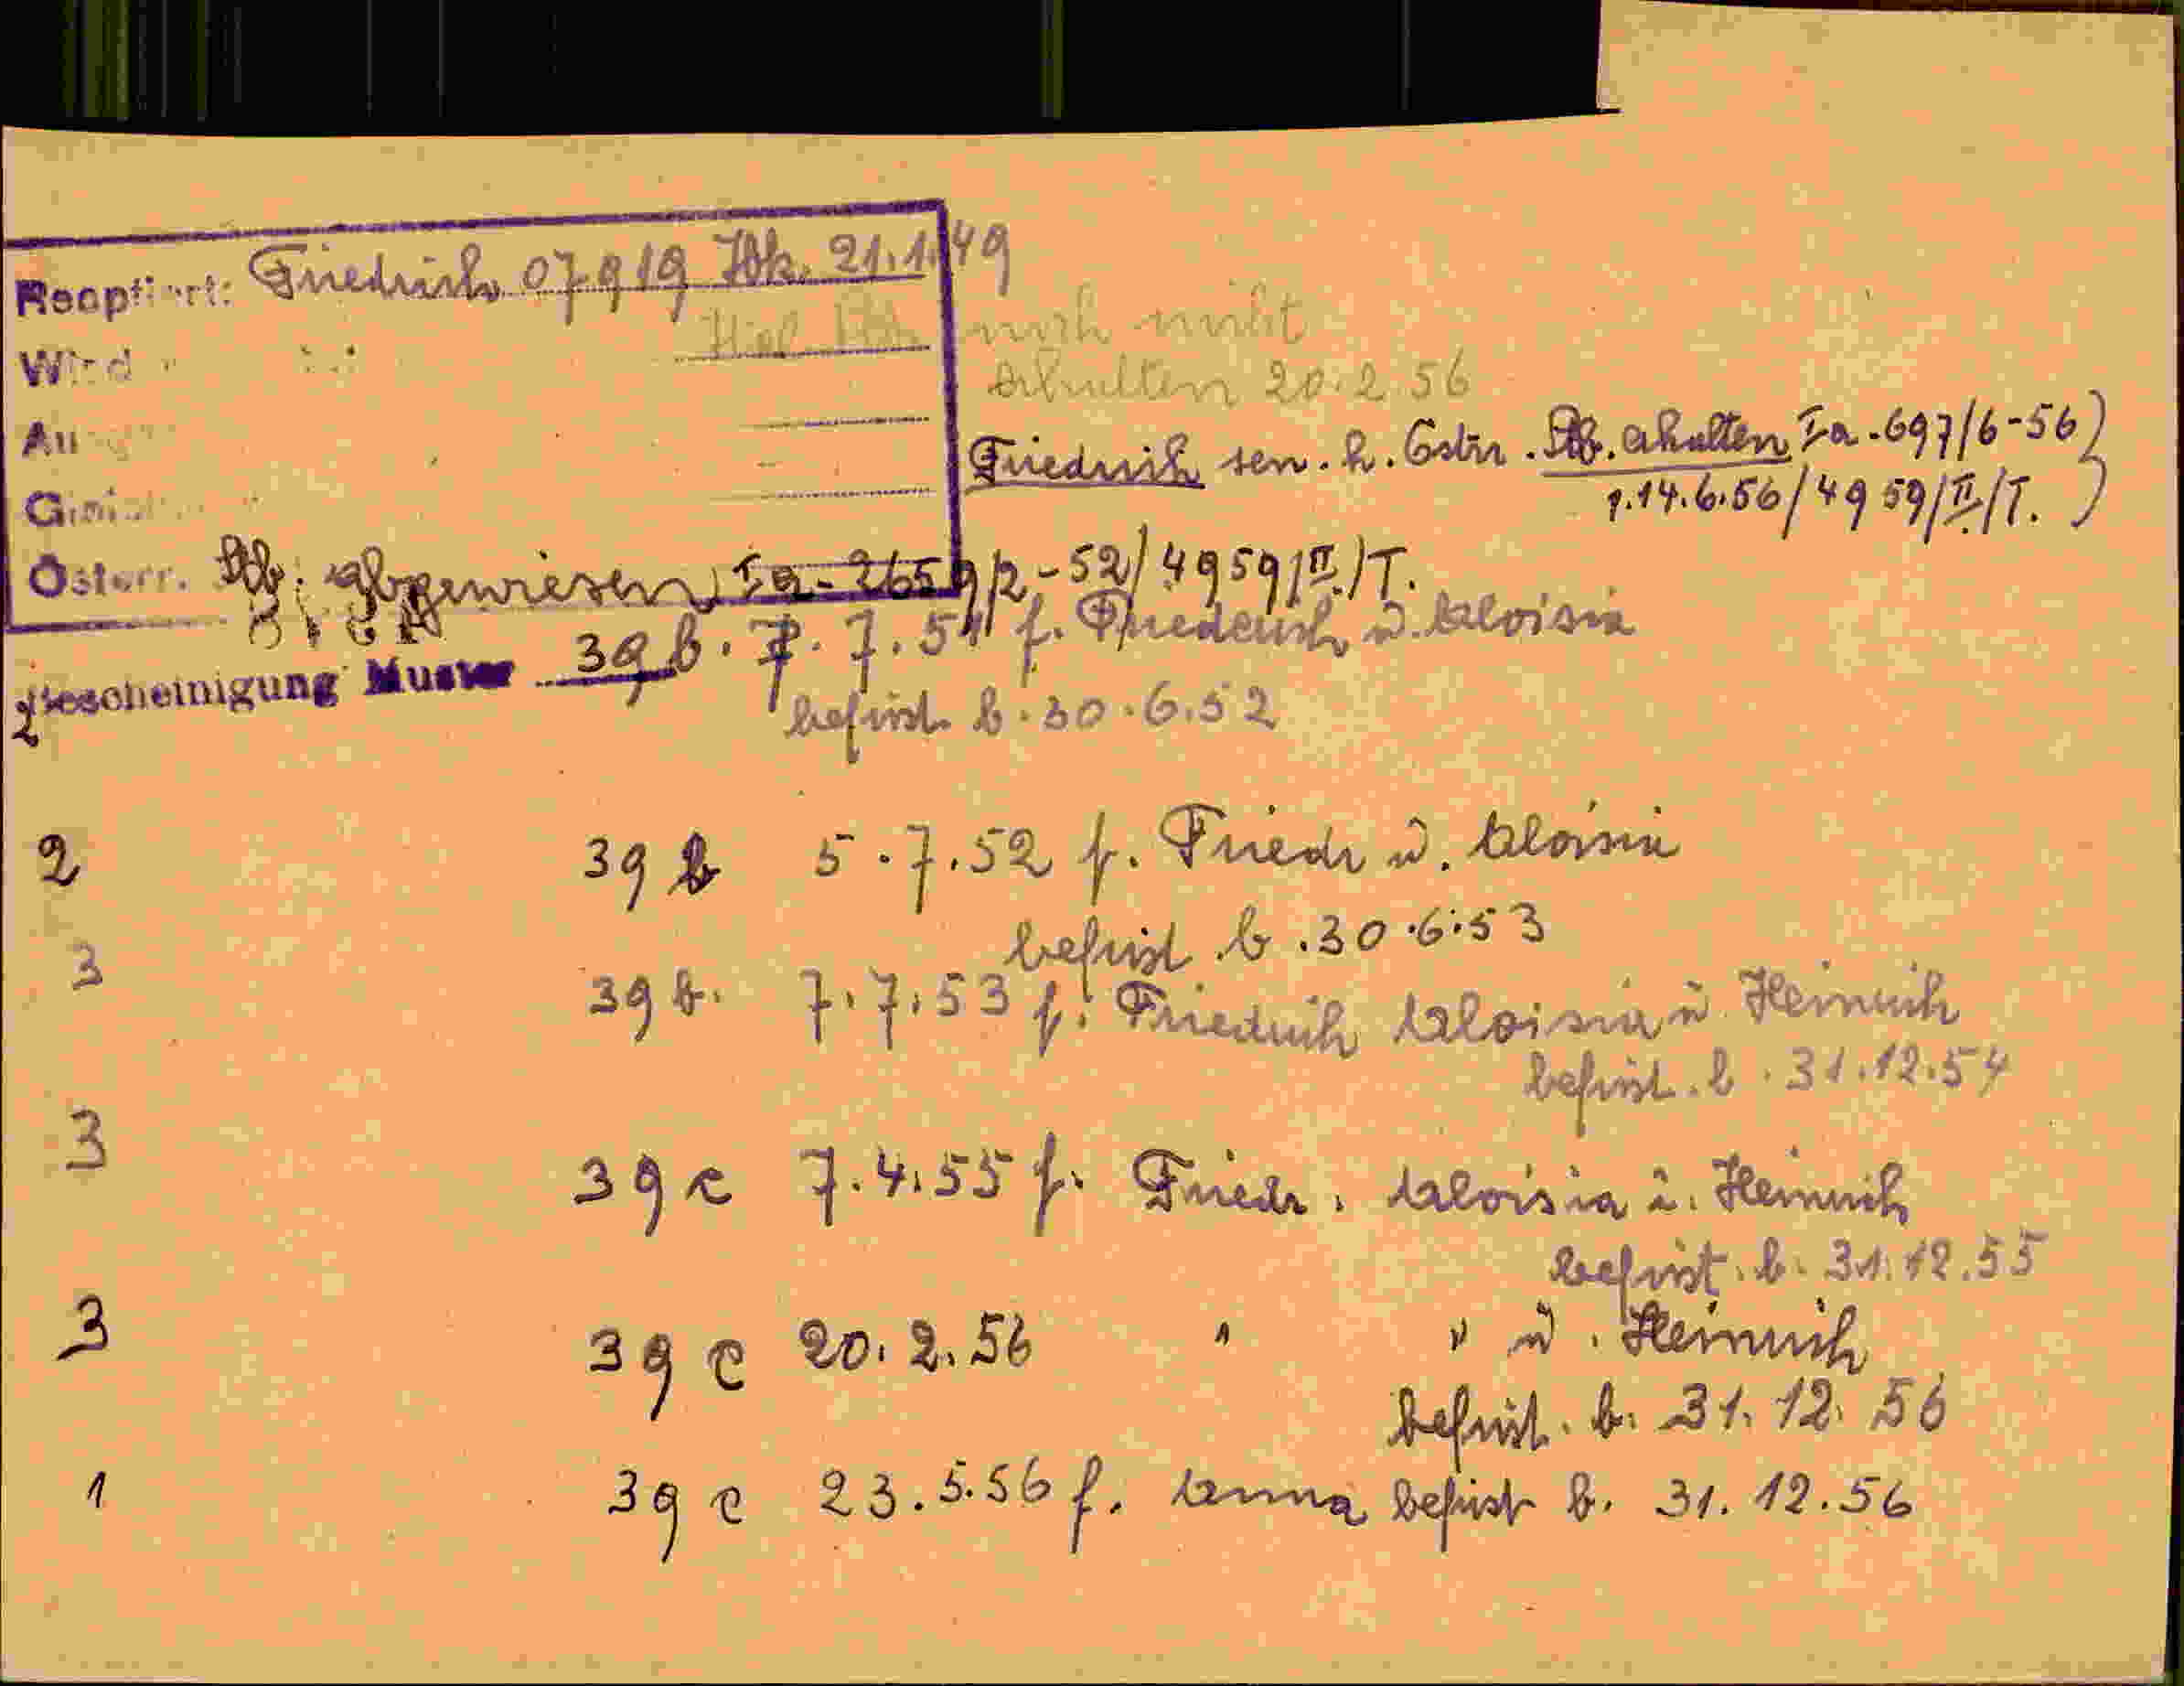 Reoptiert: Friedrich 07919 Jbk. 21.1.49
Wird
noch nicht
erhalten 20.2.56
Au
Friedrich sen. h. Östr. Stb. erhalten Ia-697/6-56)
v. 14.6.56/4959/II/T. )
Österr. Stb. abgewiesen Ia-2659/2-52/4959/II./T.
2 Bescheinigung Muster 39 b. 7. 7. 51 f. Friederich u. Aloisia
befrist. b. 30.6.52
2 39 b 5.7.52 f. Friedr u. Aloisia
befrist. b. 30.6.53
3 39 b. 7.7.53 f. Friedrich Aloisia u. Heinrich
befrist. b. 31.12.54
3 39 c 7.4.55 f. Friedr. Aloisia u. Heinrich
befrist. b. 31.12.55
3 39 c 20.2.56 " " u. Heinrich
befrist. b. 31.12.56
1 39 c 23.5.56 f. Anna befrist b. 31.12.56